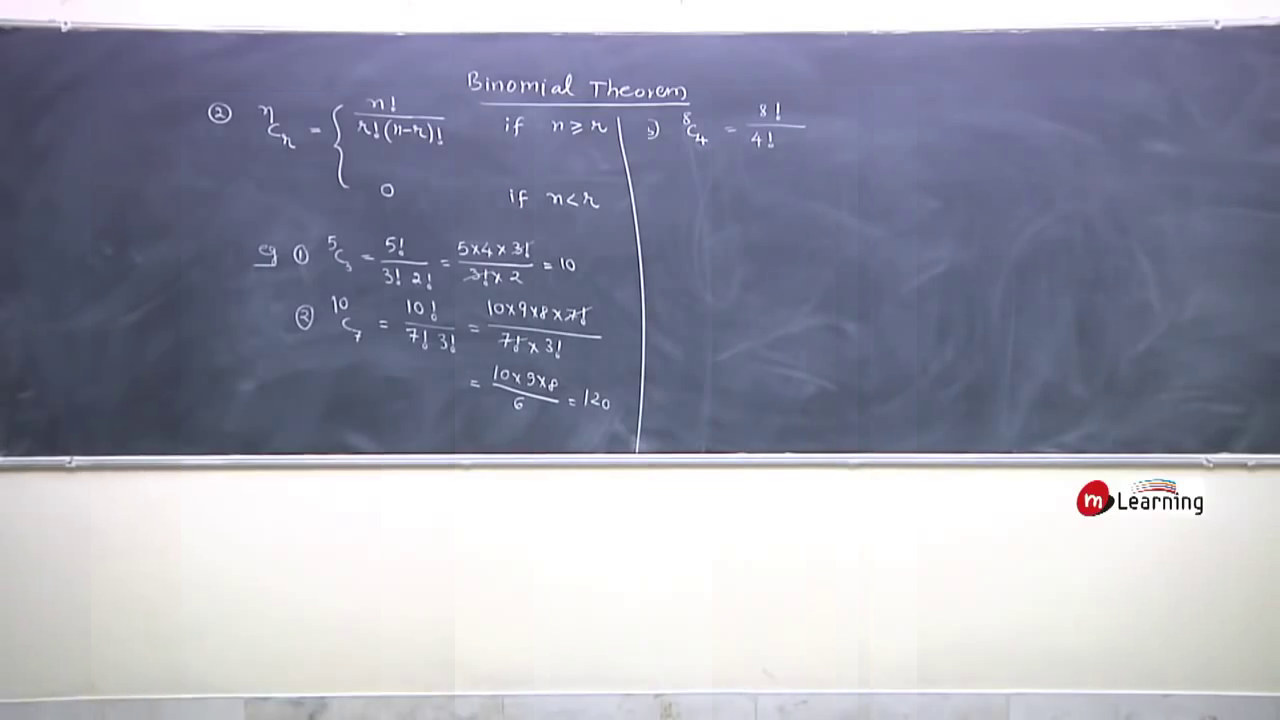 Binomial Theorem
② ⁿCᵣ = { n! / r!(n-r)! if n ≥ r
0 if n < r
eg ① ⁵C₃ = 5! / 3! 2! = 5×4×3! / 3!×2 = 10
② ¹⁰C₇ = 10! / 7! 3! = 10×9×8×7! / 7!×3!
= 10×9×8 / 6 = 120
3) ⁸C₄ = 8! / 4!
m Learning